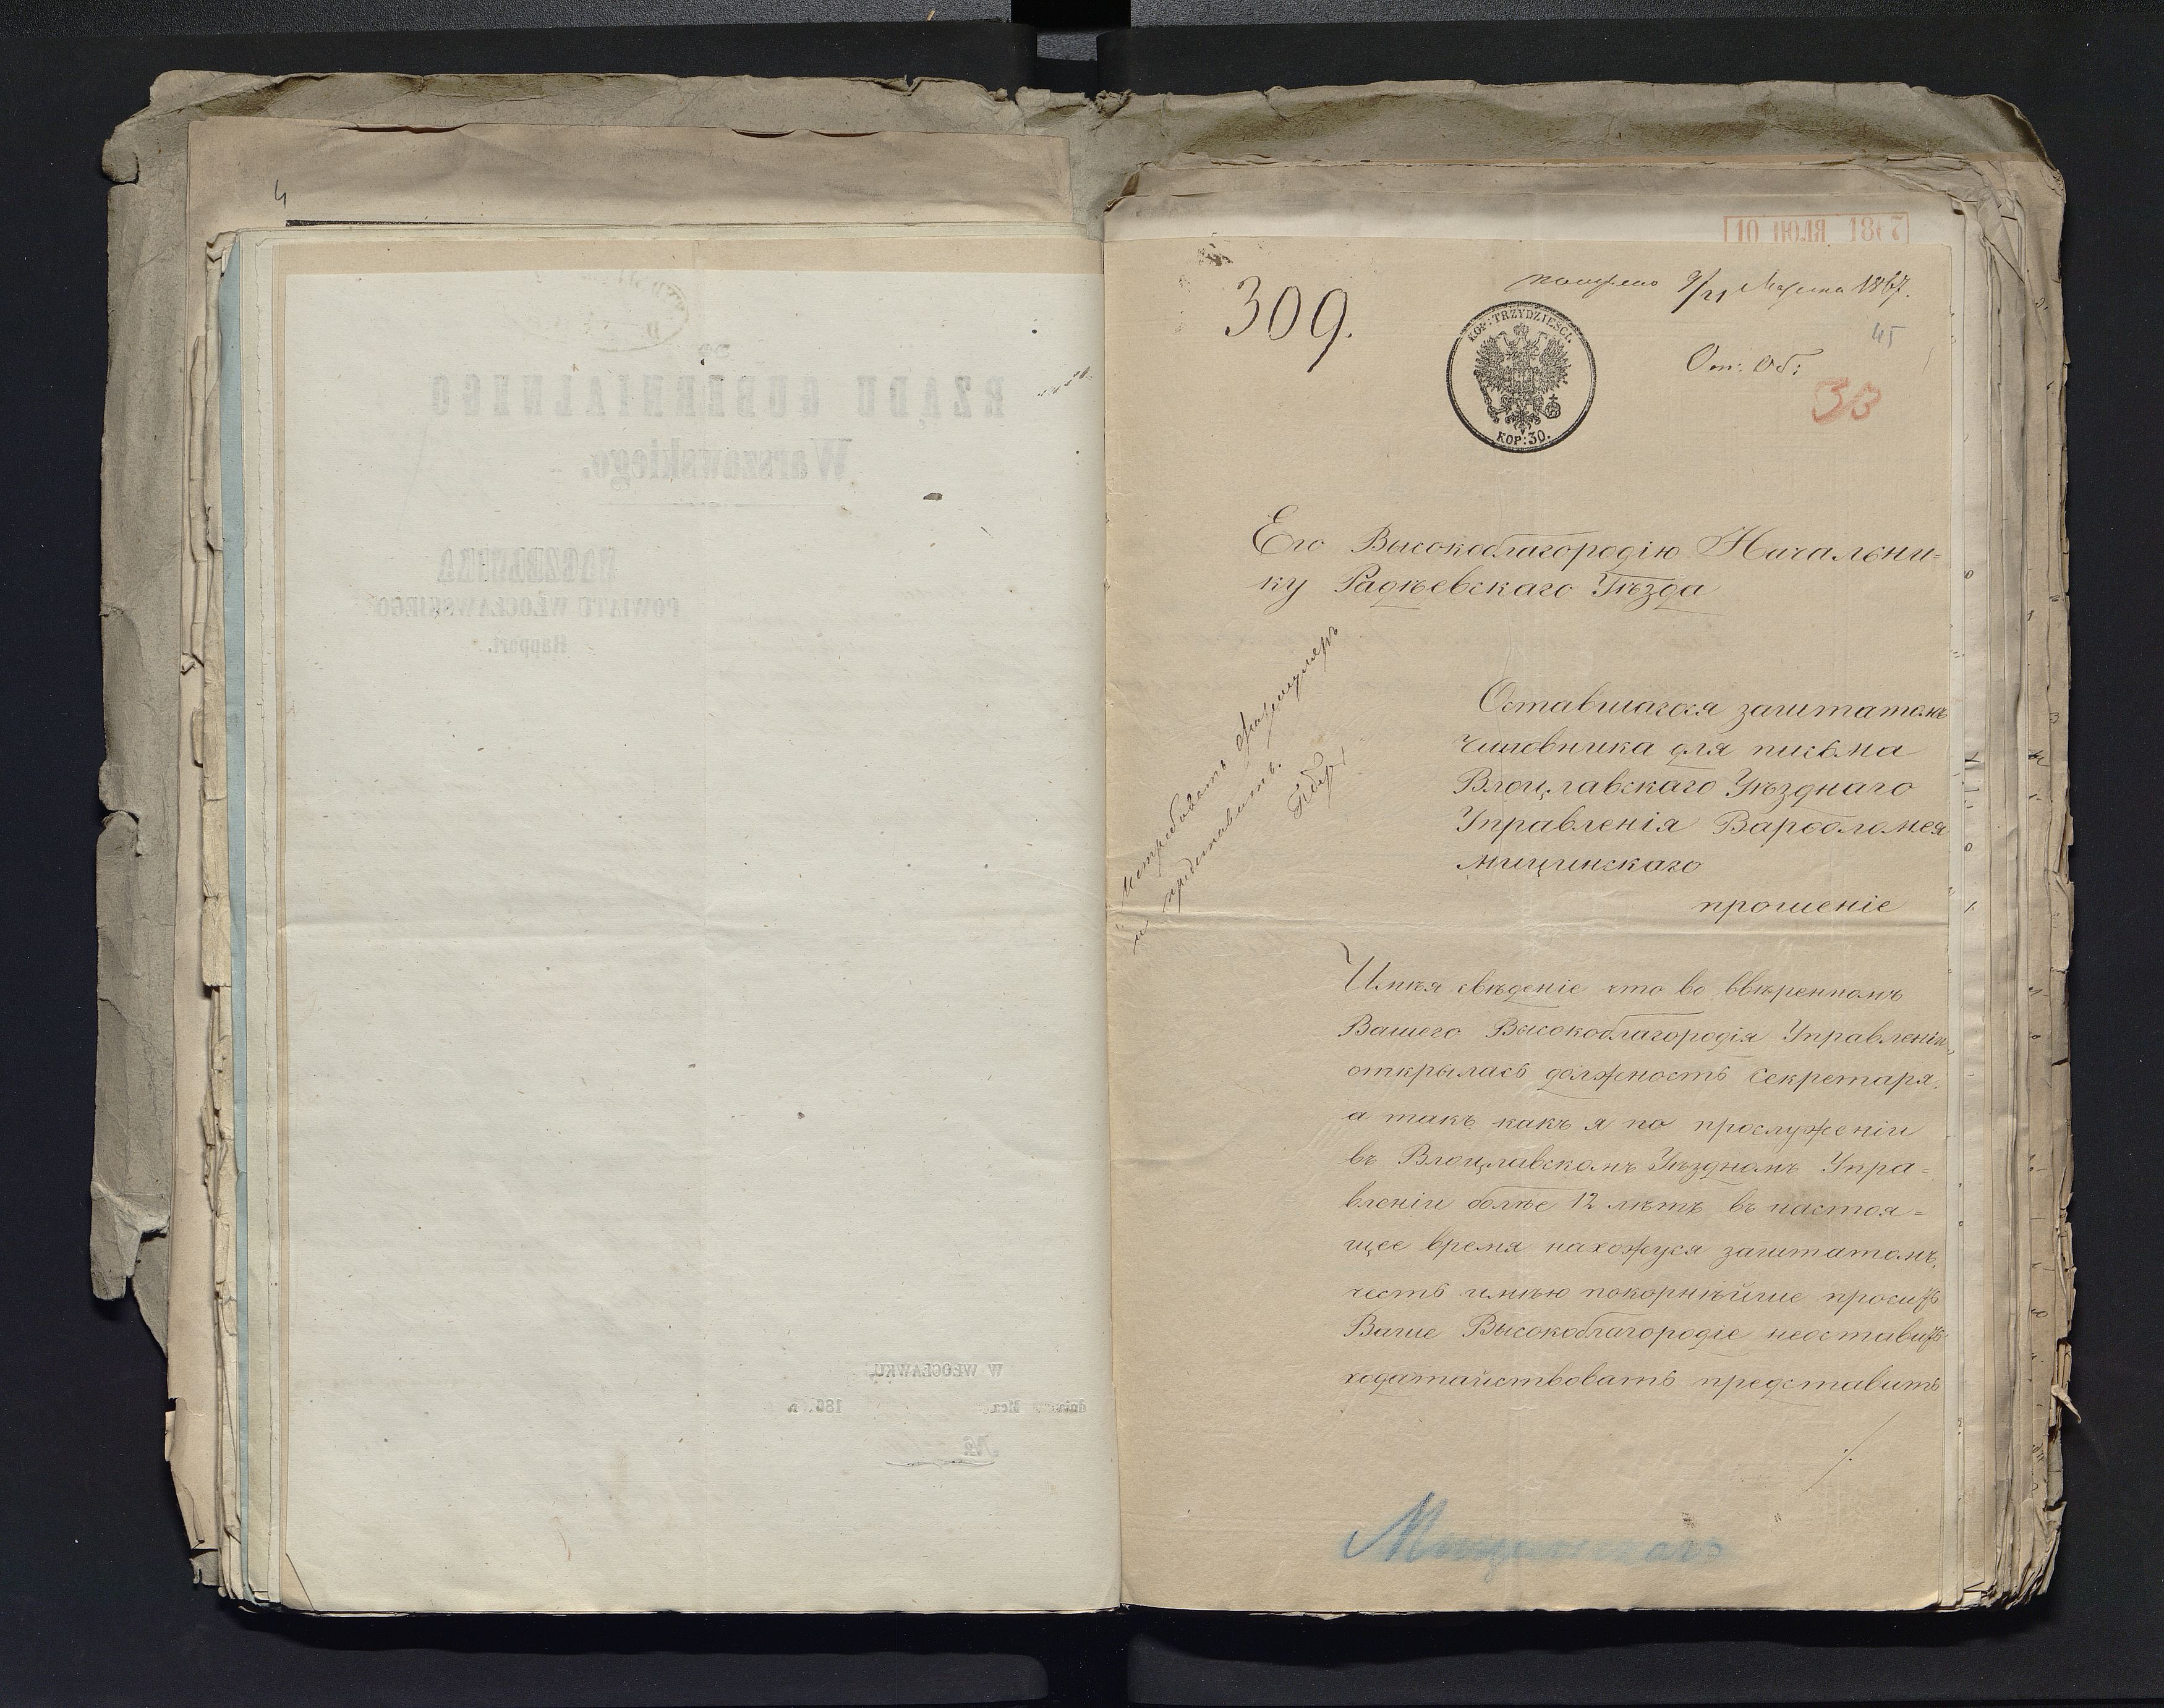 4
RZĄDU GUBERNIALNEGO
Warszawskiego.
NACZELNIKA
POWIATU WŁOCŁAWSKIEGO
Rapport.
W WŁOCŁAWKU,
dnia Mca 186 r.
№
10 ИЮЛЯ 1867
309.
получено 9/21 Марта 1867.
45
От: Об:
33
KOP: TRZYDZIEŚCI.
KOP: 30.
Его Высокоблагородію Начальни=
ку Радѣевскаго Уѣзда
Оставшагося заштатомъ
чиновника для письма
Влоцлавскаго Уѣзднаго
Управленія Варѳоломея
Мицинскаго
прошеніе
Истребовать формуляръ
и представить.
Имѣя свѣденіе что во ввѣренномъ
Вашего Высокоблагородія Управленіи
открылась должность Секретаря,
а такъ какъ я по прослуженіи
въ Влоцлавскомъ Уѣздномъ Упра=
вленіи болѣе 12 лѣтъ въ настоя=
щее время нахожуся заштатомъ,
честь имѣю покорнѣйше просить
Ваше Высокоблагородіе неоставить
ходатайствовать представить
./.
Мицинскаго